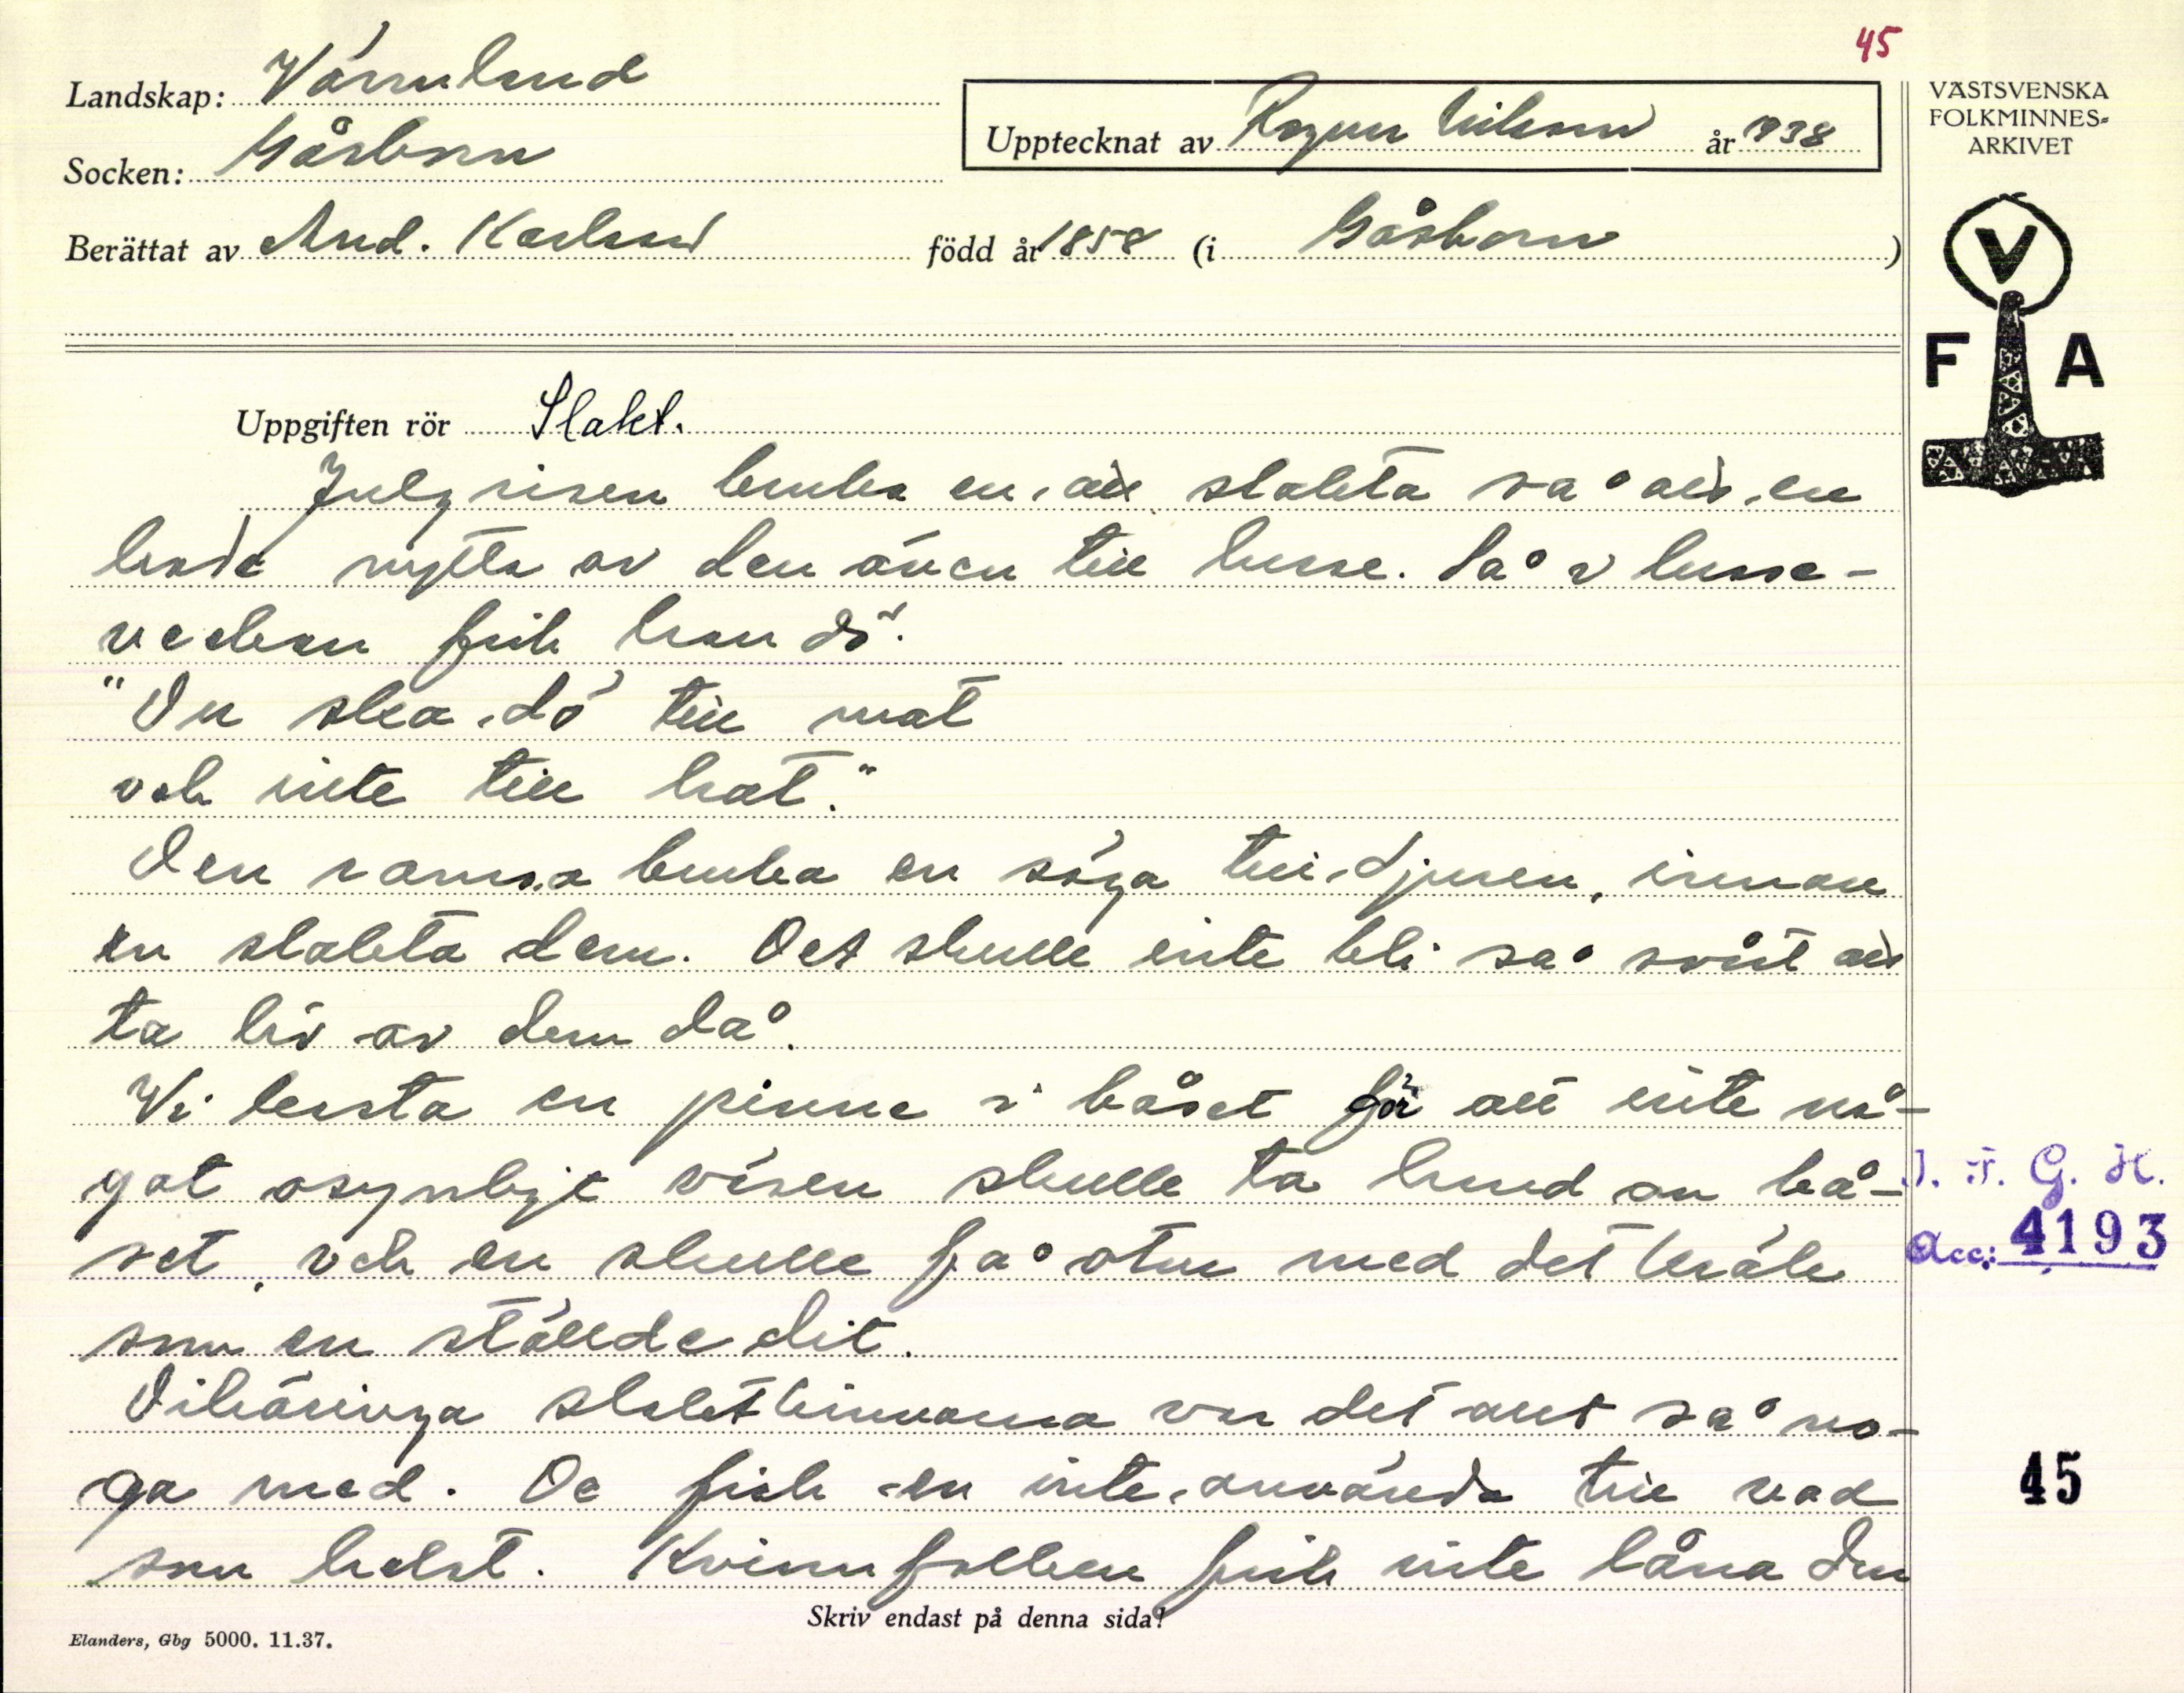 45
Landskap: Värmland
Socken: Gåsborn
Upptecknat av Ragnar Nilsson år 1938
Berättat av And. Karlsson född år 1858 (i Gåsborn)
VÄSTSVENSKA
FOLKMINNES-
ARKIVET
V
F A
Uppgiften rör Slakt.
Julgrisen bruka en att slakta så att en
hade nytta av den även till lusse. Så i lusse-
veckan fick han dö.
"Du ska dö till mat
och inte till hat."
Den ramsa bruka en säga till djuren, innan
en slakta dem. Det skulle inte bli så svårt att
ta liv av dem då.
Vi kasta en pinne i båset för att inte nå-
got osynligt väsen skulle ta hand om bå-
set, och en skulle få otur med det kräk
som en ställde dit.
I. F. G. H.
Acc: 4193
Vikäninga slaktknivarna var det allt så no-
ga med. De fick en inte använda till vad
45
som helst. Kvinnfolken fick inte låna dem
Skriv endast på denna sida!
Elanders, Gbg 5000. 11.37.